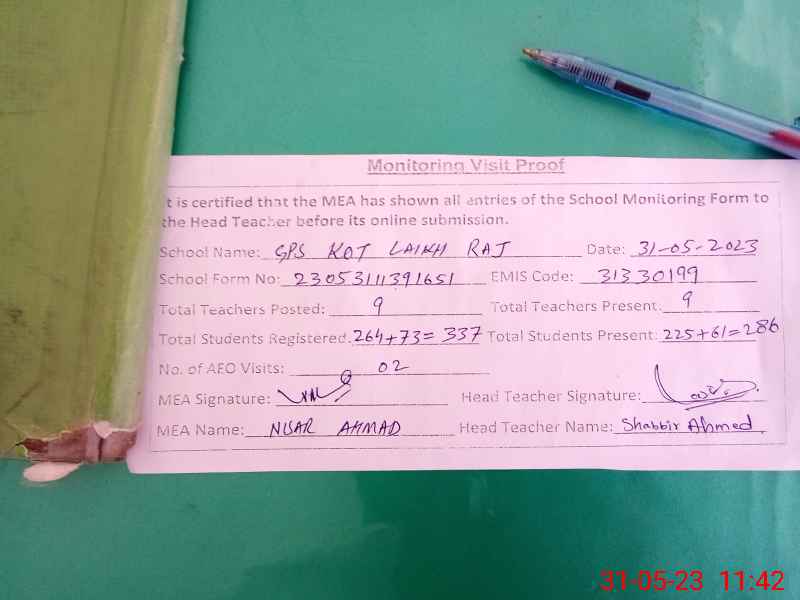 Monitoring Visit Proof
t is certified that the MEA has shown all entries of the School Monitoring Form to
the Head Teacher before its online submission.
School Name: GPS KOT LAIKH RAJ Date: 31-05-2023
School Form No: 23053111391651 EMIS Code: 31330199
Total Teachers Posted: 9 Total Teachers Present: 9
Total Students Registered: 264+73= 337 Total Students Present: 225+61=286
No. of AEO Visits: 02
MEA Signature: Head Teacher Signature:
MEA Name: NISAR AHMAD Head Teacher Name: Shabbir Ahmed
31-05-23 11:42